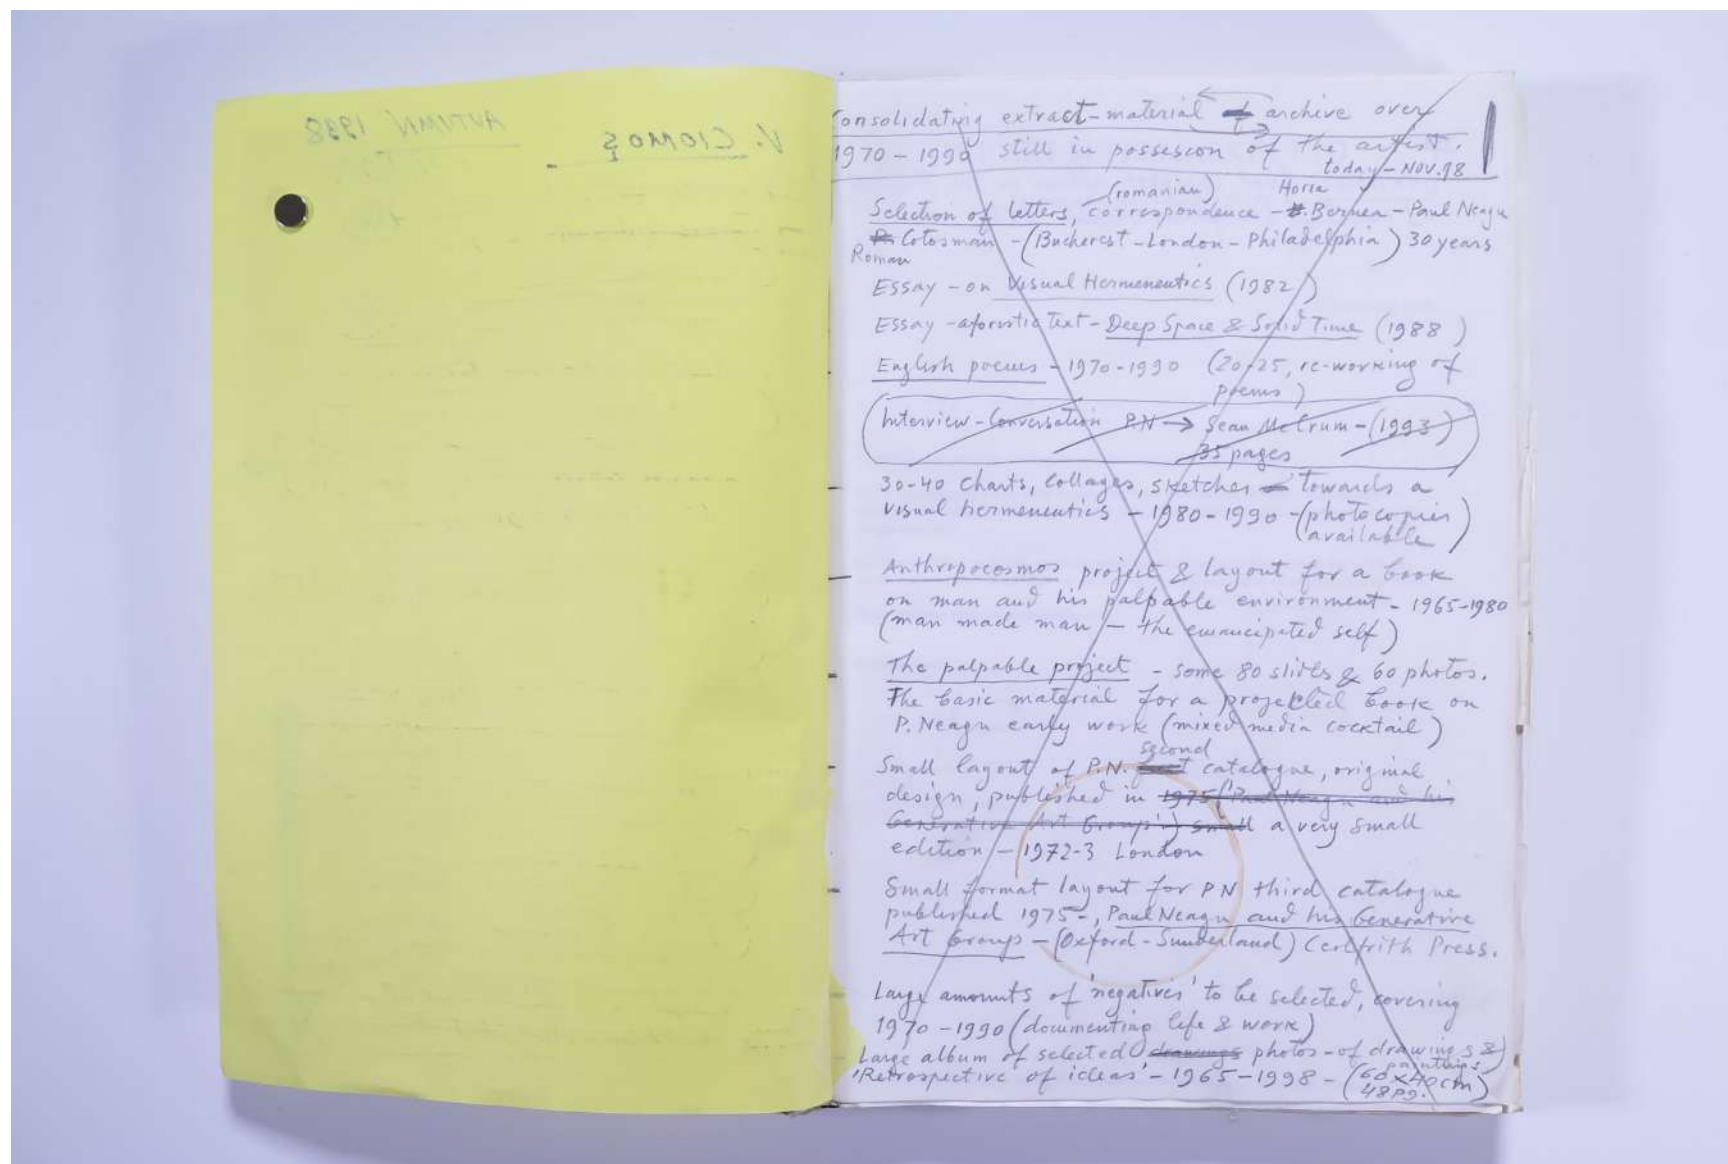 AUTUMN 1998
V. CIOMOȘ
Consolidating extract-material archive over
1970-1990 still in possession of the artist.
today-NOV.98
(romanian) Horia
Selection of letters, correspondence - H. Bernea - Paul Neagu
R. Cotosman - (Bucharest-London-Philadelphia) 30 years
Roman
Essay - on Visual Hermeneutics (1982)
Essay - aforistic text - Deep Space & Solid Time (1988)
English poems - 1970-1990 (20-25, re-working of
poems)
Interview-Conversation P.N → Sean McCrum - (1993)
35 pages
30-40 Charts, Collages, sketches towards a
visual hermeneutics - 1980-1990 - (photocopies
available)
Anthropocosmos project & layout for a book
on man and his palpable environment - 1965-1980
(man made man - the emancipated self)
The palpable project - some 80 slides & 60 photos.
The basic material for a projected book on
P. Neagu early work (mixed media cocktail)
second
Small layout of P.N. catalogue, original
design, published in 1975 (Paul Neagu and his
Generative Art Group') small a very small
edition - 1972-3 London
Small format layout for PN third catalogue
published 1975-, Paul Neagu and his Generative
Art Group - (Oxford-Sunderland) Ceolfrith Press.
Large amounts of 'negatives' to be selected, covering
1970-1990 (documenting life & work)
Large album of selected drawings photos-of drawings &
paintings
'Retrospective of ideas' - 1965-1998 - (60x40cm)
48pg.